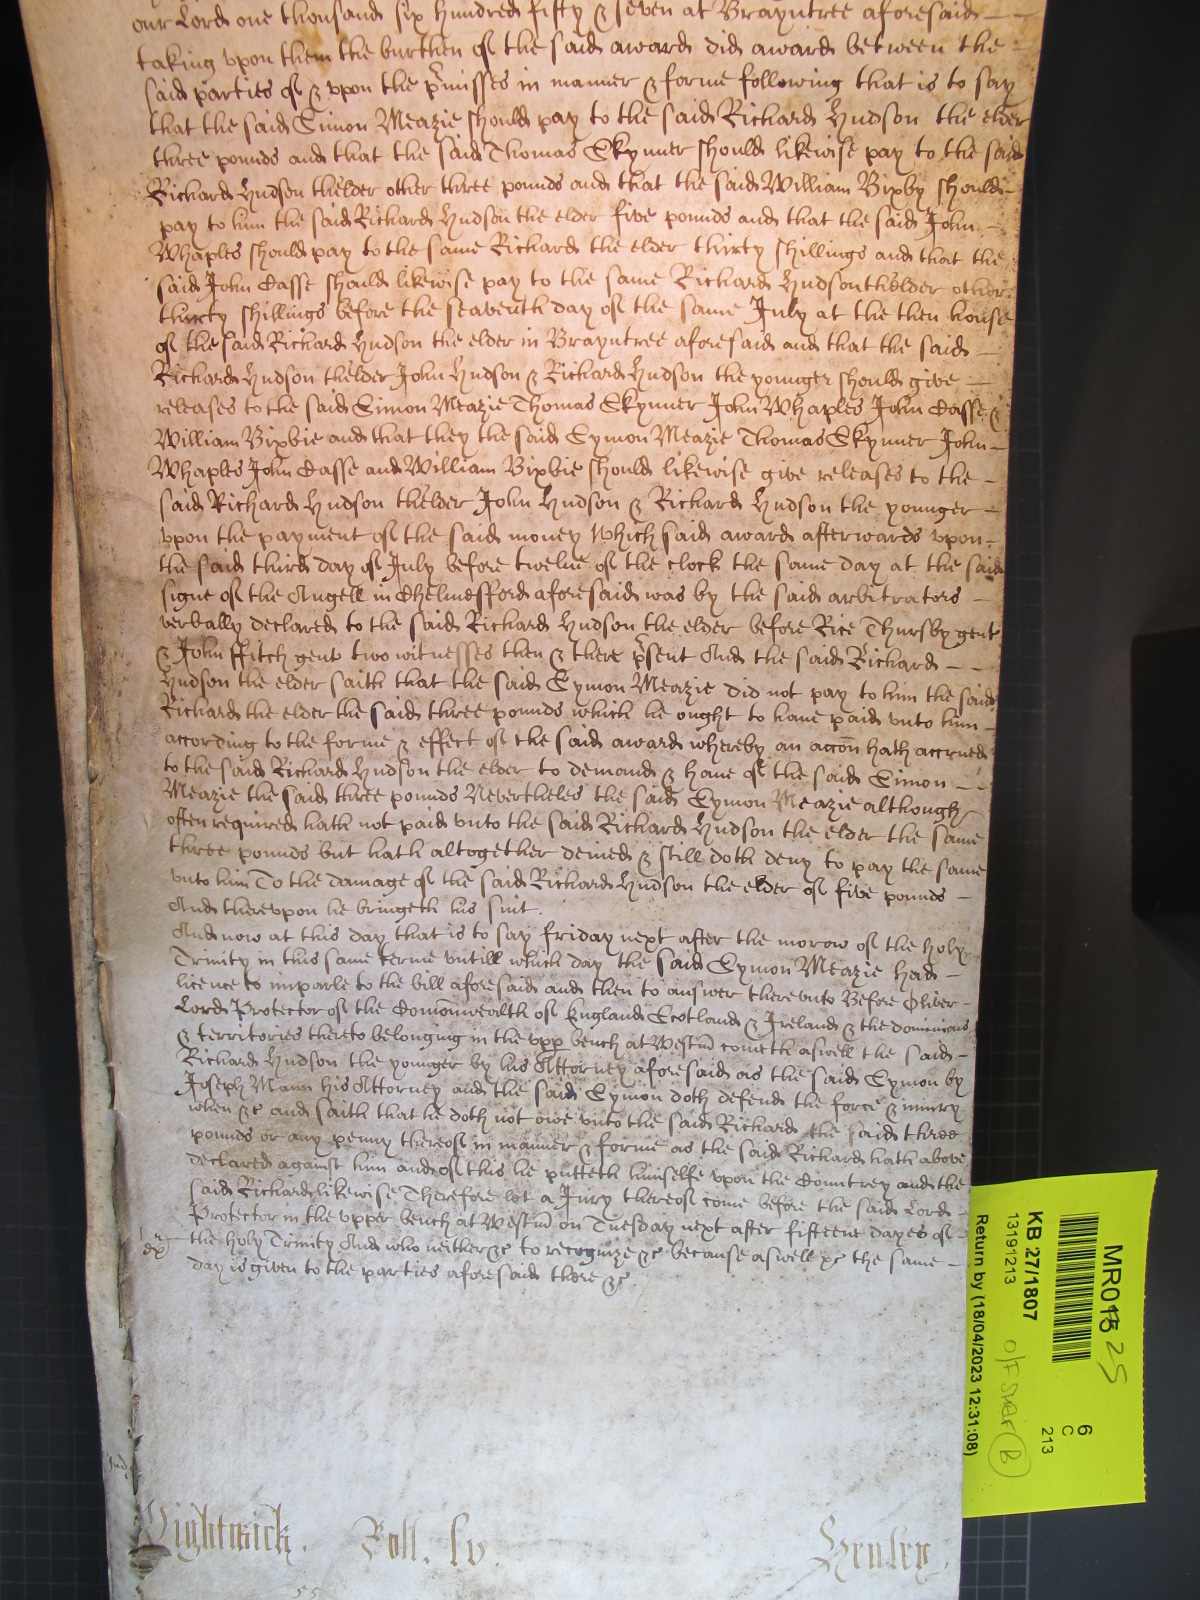 our Lord one thousand six hundred fifty & seven at Brayntree aforesaid
taking vpon them the burthen of the said award did award between the
said parties of & vpon the p̄misses in manner & forme following that is to say
that the said Simon Meazie should pay to the said Richard Hudson the elder
three pounds and that the said Thomas Skynner should likewise pay to the said
Richard Hudson thelder other three pounds and that the said William Bixby should
pay to him the said Richard Hudson the elder five pounds and that the said John
Whaples should pay to the same Richard the elder thirty shillings and that the
said John Casse should likewise pay to the same Richard Hudson thelder other
thirty shillings before the seaventh day of the same July at the then house
of the said Richard Hudson the elder in Brayntree aforesaid and that the said
Richard Hudson thelder John Hudson & Richard Hudson the younger should give
releases to the said Simon Meazie Thomas Skynner John Whaples John Casse &
William Bixbie and that they the said Symon Meazie Thomas Skynner John
Whaples John Casse and William Bixbie should likewise give releases to the
said Richard Hudson thelder John Hudson & Richard Hudson the younger
vpon the payment of the said money Which said award afterwards vpon
the said third day of July before twelue of the clock the same day at the said
signe of the Angell in Chelmesfford aforesaid was by the said arbitrators
verbally declared to the said Richard Hudson the elder before Rice Thursby gent
& John ffitch gent two witnesses then & there p̄sent And the said Richard
Hudson the elder saith that the said Symon Meazie did not pay to him the said
Richard the elder the said three pounds which he ought to haue paid vnto him
according to the forme & effect of the said award whereby an accōn hath accrued
to the said Richard Hudson the elder to demand & haue of the said Simon
Meazie the said three pounds Nevertheles the said Symon Meazie although
often required hath not paid vnto the said Richard Hudson the elder the same
three pounds but hath altogether denied & still doth deny to pay the same
vnto him To the damage of the said Richard Hudson the elder of five pounds
And therevpon he bringeth his suit.
And now at this day that is to say friday next after the morow of the holy
Trinity in this same terme vntill which day the said Symon Meazie had
licence to imparle to the bill aforesaid and then to answer therevnto Before Oliver
Lord Protector of the Com̄onwealth of England Scotland & Ireland & the dominions
& territories thereto belonging in the vpp bench at Westm̄ cometh aswell the said
Richard Hudson the younger by his Attorney aforesaid as the said Symon by
Joseph Mann his Attorney and the said Symon doth defend the force & iniury
when &c and saith that he doth not owe vnto the said Richard the said three
pounds or any penny thereof in manner & forme as the said Richard hath above
declared against him and of this he putteth himselfe vpon the Countrey and the
said Richard likewise Therefore let a Jury thereof come before the said Lord
Protector in the vpper bench at Westm̄ on Tuesday next after fifteene dayes of
the holy Trinity And who neither &c to recognize &c because aswell &c the same
day is given to the parties aforesaid there &c
Wightwick. Roll. lv. Henley.
55
MR015 25
KB 27/1807
13191213
Return by (18/04/2023 12:31:08)
6
C
213
B